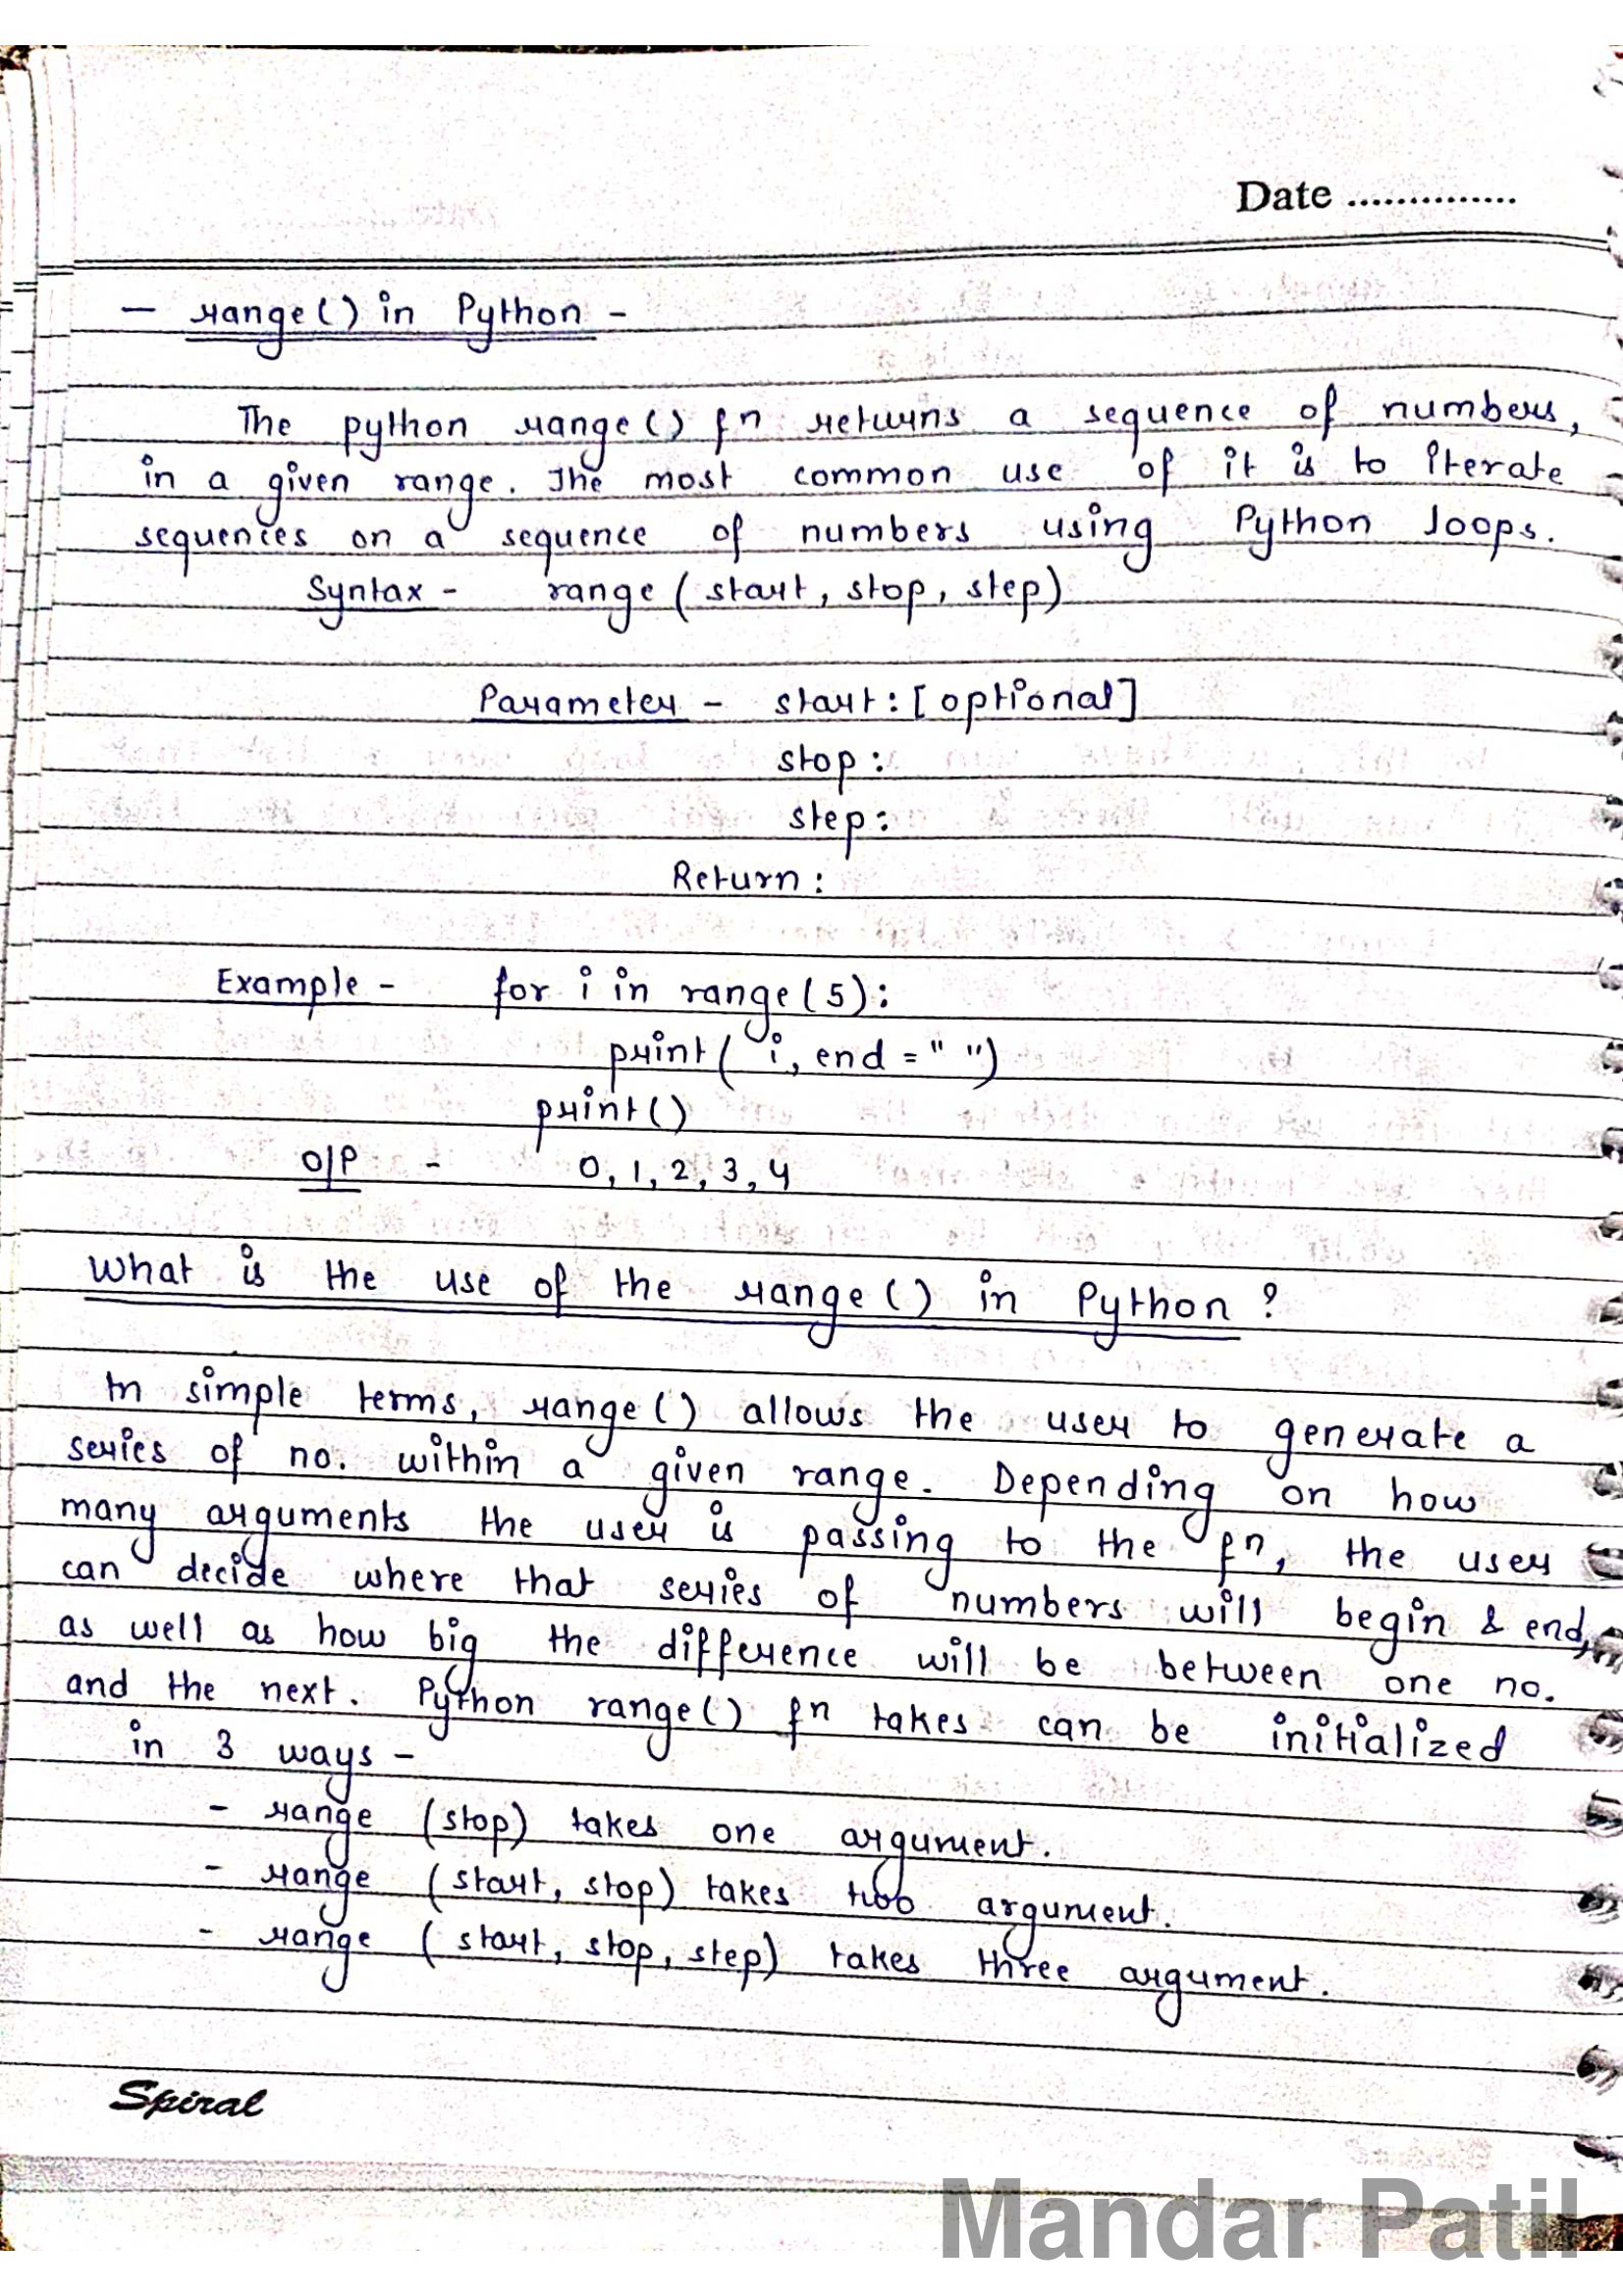 Date ..............
- range() in Python -
The python range() fn returns a sequence of numbers,
in a given range. The most common use of it is to iterate
sequences on a sequence of numbers using Python loops.
Syntax - range (start, stop, step)
Parameter - start: [optional]
stop:
step:
Return:
Example - for i in range(5):
print( i, end = " ")
print()
O/P - 0, 1, 2, 3, 4
What is the use of the range() in Python ?
In simple terms, range() allows the user to generate a
series of no. within a given range. Depending on how
many arguments the user is passing to the fn, the user
can decide where that series of numbers will begin & end,
as well as how big the difference will be between one no.
and the next. Python range() fn takes can be initialized
in 3 ways -
- range (stop) takes one argument.
- range (start, stop) takes two argument.
- range (start, stop, step) takes three argument.
Spiral
Mandar Patil